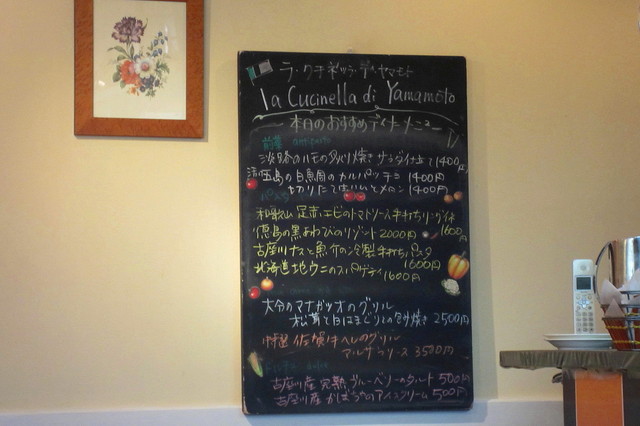 ラ・クチネッラ・ディ・ヤマモト
la Cucinella di Yamamoto
本日のおすすめディナーメニュー
前菜 antipasto
淡路のハモの炙り焼き サラダ仕立て 1400円
の白身魚のカルパッチョ 1400円
切りたて生ハムとメロン 1400円
和歌山 足赤エビのトマトソース手打ちリングイネ 1600円
徳島の黒あわびのリゾット 2000円
古座川ナスと魚介の冷製手打ちパスタ 1600円
北海道地ウニのスパゲティ 1600円
大分のマナガツオのグリル
松茸と白はまぐりの包み焼き 2500円
特選 佐賀牛ヘレのグリル
マルサラソース 3500円
古座川産 完熟ブルーベリーのタルト 500円
古座川産 かぼちゃのアイスクリーム 500円